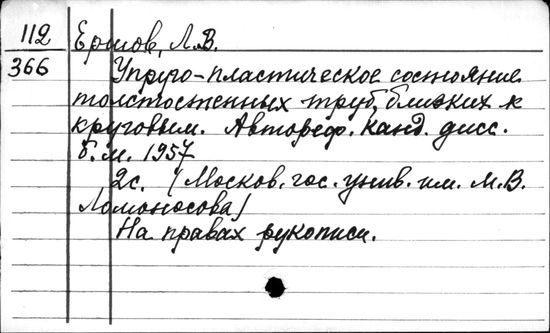 112 Ершов, Л.В.
366 Упруго-пластическое состояние
толстостенных труб, близких к
круговым. Автореф. канд. дисс.
б.м. 1957
2с. (Москов. гос. унив. им. М.В.
Ломоносова)
На правах рукописи.